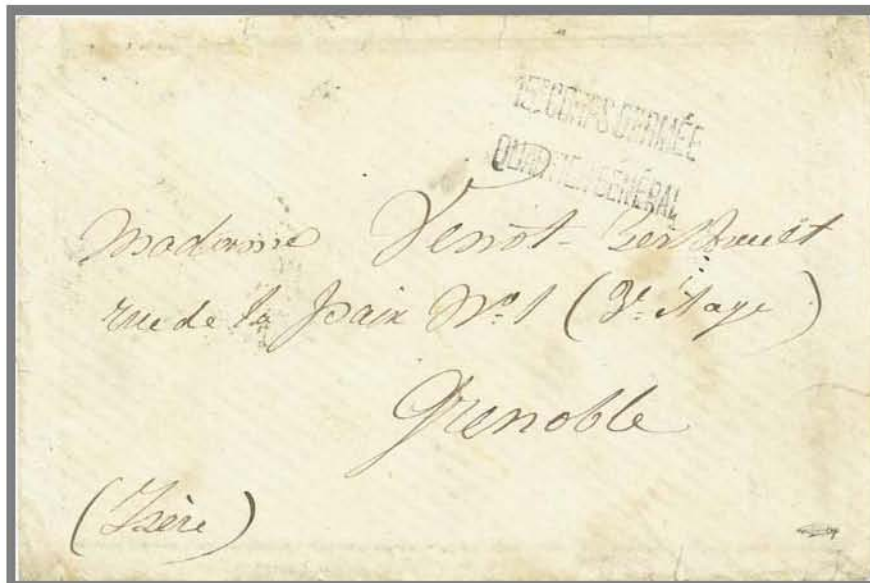 15E CORPS D'ARMÉE
QUARTIER GÉNÉRAL
Madame Venot-
rue de la paix No. 1 (3e. étage)
Grenoble
(Isère)